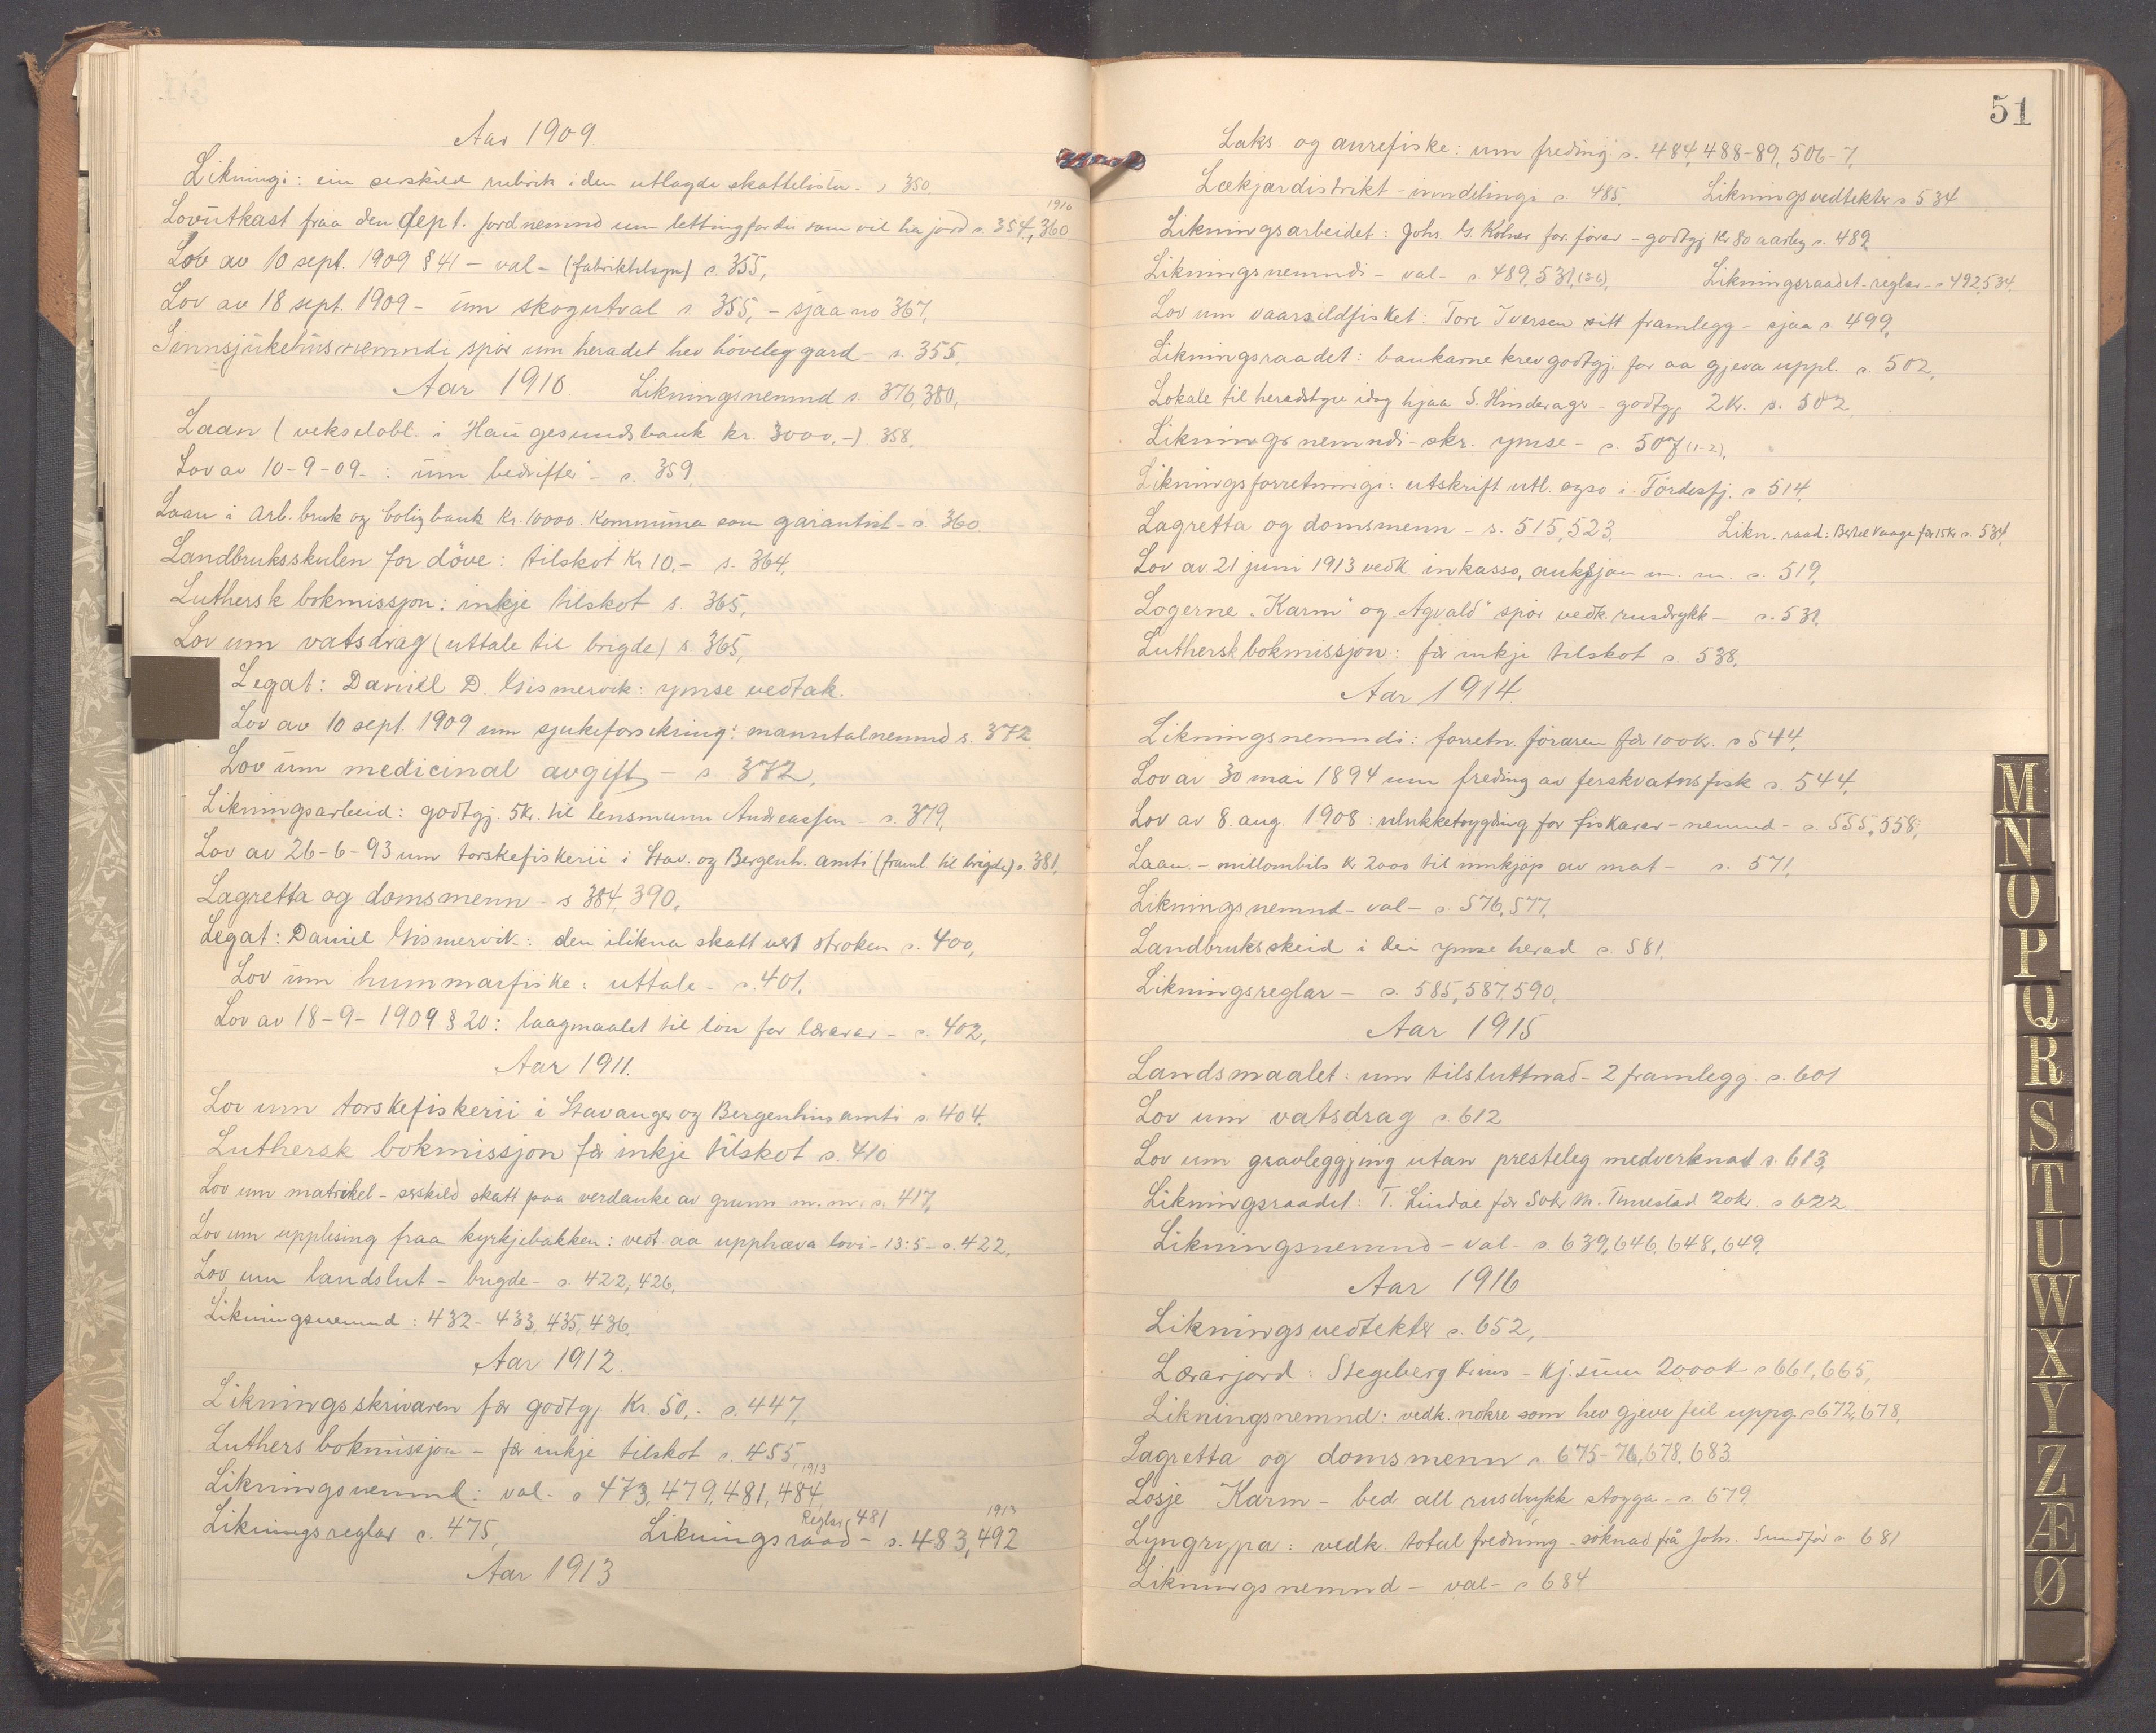 Aar 1909.
Likningi: ein serskild rubrik i den utlagde skattelista - s 350,
1910
Lovutkast fraa den dept. jordnemnd um letting for dei som vil ha jord s. 354, 360
Lov av 10 sept. 1909 § 41 - val - (fabriktilsyn) s. 355,
Lov av 18 sept. 1909 - um skogutval s. 355, - sjaa no 367,
Sinnsjukehusnemndi spör um heradet hev höveleg gard - s. 355,
Aar 1910. Likningsnemnd s. 376, 380,
Laan (vekselobl. i Haugesundsbank kr. 3000,-) 358,
Lov av 10-9-09 - : um bedrifter - s. 359,
Laan i Arb. bruk og boligbank Kr. 10000. Kommuna som garantist - s. 360.
Landbruksskulen for döve: tilskot Kr 10,- s. 364,
Luthersk bokmissjon: inkje tilskot s. 365,
Lov um vatsdrag (uttale til brigde) s. 365,
Legat: Daniel D. Gismervik: ymse vedtak.
Lov av 10 sept. 1909 um sjukeforsikring: manntalnemnd s. 372
Lov um medicinal avgift - s. 372,
Likningsarbeid: godtgj. 5kr. til lensmann Andreassen - s. 379,
Lov av 26-6-93 um torskefiskerii i Stav. og Bergenh. amti (framl. til brigde) s. 381,
Lagretta og domsmenn - s 384, 390,
Legat: Daniel Gismervik: den ilikna skatt vert stroken s. 400,
Lov um hummarfiske: uttale - s. 401,
Lov av 18-9-1909 § 20: laagmaalet til lön for lærarar - s. 402,
Aar 1911.
Lov um torskefiskerii i Stavanger og Bergenhus amti s 404,
Luthersk bokmissjon fær inkje tilskot s. 410
Lov um matrikel - serskild skatt paa verdauke av grunn m. m. s. 417,
Lov um upplesing fraa kyrkjebakken: vedt. aa upphæva lovi - 13:5 - s. 422,
Lov um landslut - brigde - s. 422, 426,
Likningsnemnd: 432 - 433, 435, 436,
Aar 1912.
Likningsskrivaren fær godtgj Kr. 50,- s. 447,
Luthers bokmissjon - fær inkje tilskot s. 455,
1913
Likningsnemnd: val - s 473, 479, 481, 484,
Reglar, 481 1913
Likningsreglar s. 475, Likningsraad - s. 483, 492
Aar 1913
51
Laks- og aurefiske: um freding s. 484, 488-89, 506-7,
Lækjardistrikt - inndelingi s. 485, Likningsvedtekter s 534
Likningsarbeidet: Johs. G. Kolnes for. förar - godtgj Kr 80 aarleg s. 489
Likningsnemndi - val - s. 489, 531, (3-6), Likningsraadet - reglar - s 492, 534,
Lov um vaarsildfisket: Tore Iversen sitt framlegg - sjaa s. 499,
Likningsraadet: bankarne krev godtgj. for aa gjeva uppl. s. 502,
Lokale til heradstyre idag hjaa S. Hinderager - godtgj 2 Kr. s. 502
Likningsnemndi - skr. ymse - s. 507 (1-2),
Likningsforretningi: utskrift utl. ogso i Fördesfj. s 514,
Lagretta og domsmenn - s. 515, 523, Likn. raad: Bertel Vaage fær 15 kr s. 534,
Lov av 21 juni 1913 vedk. inkasso, auksjon m. m. s. 519,
Logerne "Karm" og "Agvald" spör vedk. rusdrykk - s. 531,
Luthersk bokmissjon: fær inkje tilskot s. 538,
Aar 1914.
Likningsnemndi: forretn. föraren fær 100 Kr. s 544,
Lov av 30 mai 1894 um freding av ferskvatnsfisk s. 544,
Lov av 8. aug. 1908: ulukketrygding for fiskarar - nemnd - s. 555, 558,
Laan - millombils kr 2000 til innkjöp av mat - s. 571,
Likningsnemnd - val - s. 576, 577,
Landbruksskeid i dei ymse herad s. 581,
Likningsreglar - s. 585, 587, 590,
Aar 1915
Landsmaalet: um tilsluttnad - 2 framlegg s. 601
Lov um vatsdrag s. 612
Lov um gravleggjing utan presteleg medverknad s. 613,
Likningsraadet: T. Lindöe fær 50 kr M. Tunestad 20 kr. s 622
Likningsnemnd - val - s. 639, 646, 648, 649,
Aar 1916
Likningsvedtekter s. 652,
Lærarjord: Stegeberg krins - kj. sum 2000 k s 661, 665,
Likningsnemnd: vedk. nokre som hev gjeve feil uppg. s 672, 678,
Lagretta og domsmenn s. 675-76, 678, 683
Losje Karm - bed all rusdrykk stogga - s. 679,
Lyngrypa: vedk. total fredning - söknad frå Johs. Sundför s 681
Likningsnemnd - val - s 684
M
N
O
P
Q
R
S
T
U
W
X
Y
Z
Æ
Ø